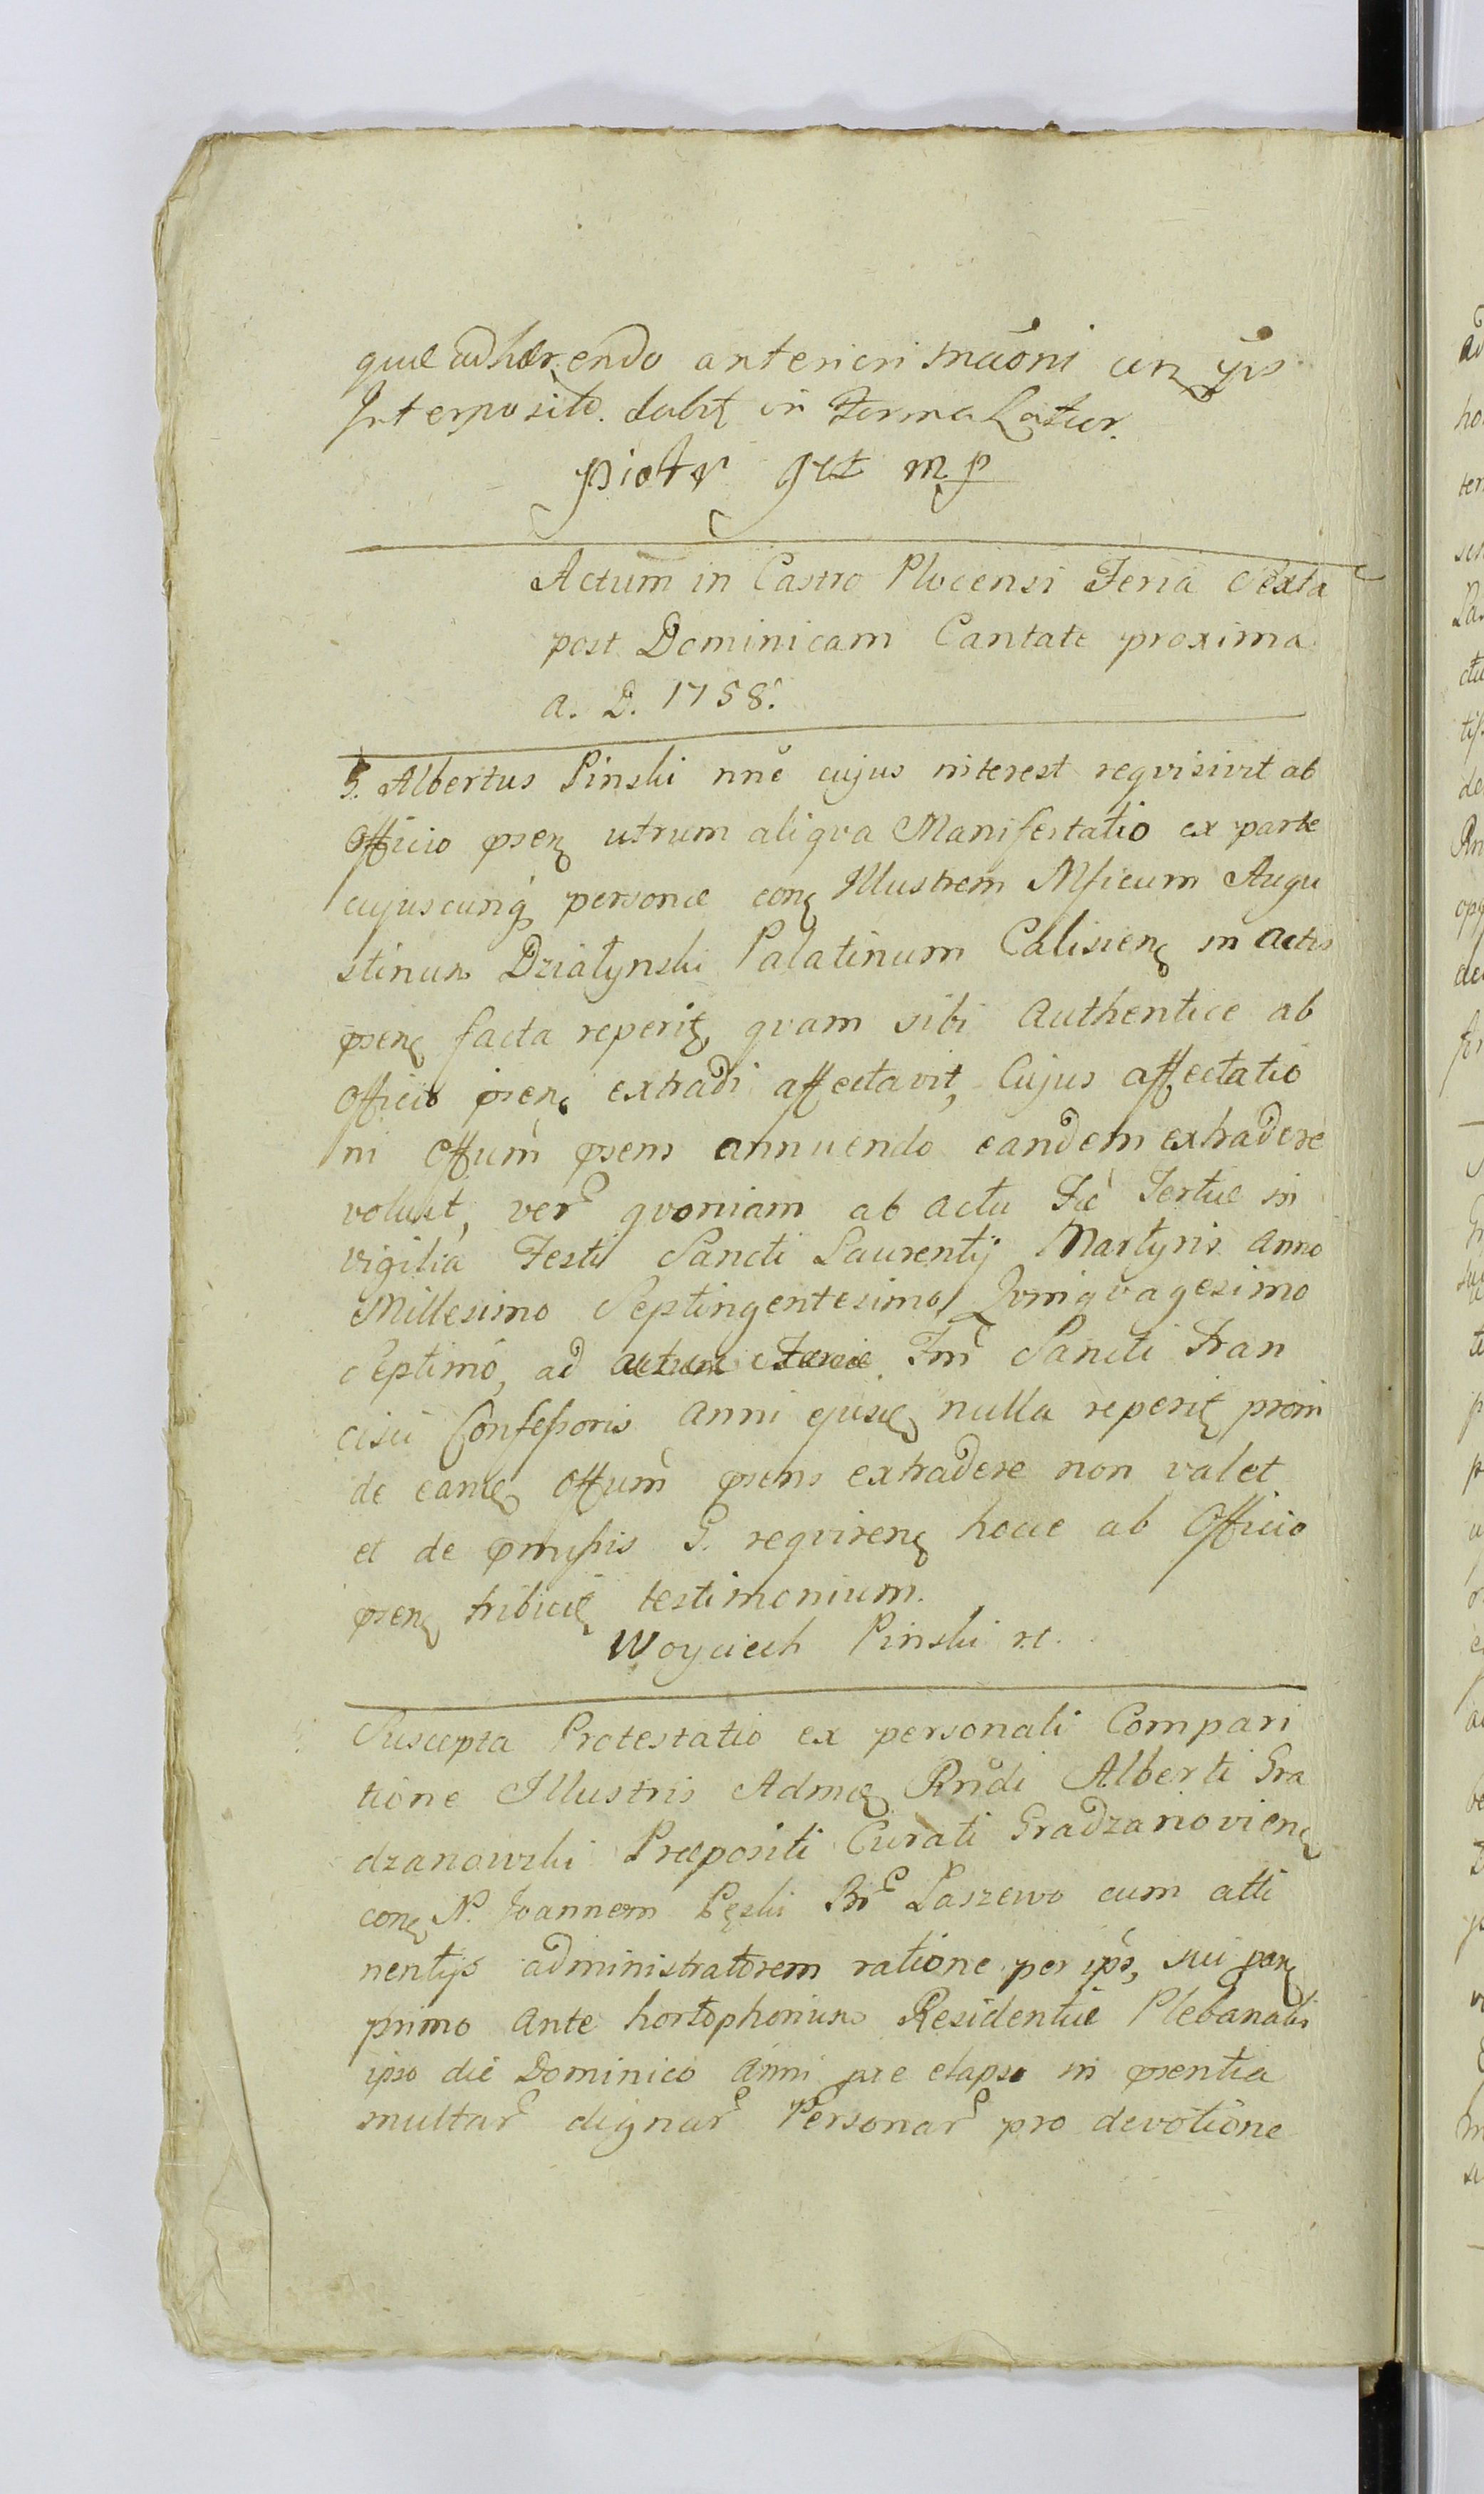 quæ adhærendo anteriori mãoni
Interposito. dabit in Forma Latior.
Piotr mp
Actum in Castro Plocensi Feria Sexta
post Dominicam Cantate proxima
a. D. 1758.
G. Albertus Pinski nnẽ cujus interest reqvisivit ab
Officio pseñ utrum aliqva Manifestatio ex parte
cujuscunq personæ con Illustrem Mficum Augu
stinum Działynski Palatinum Calisien in actis
psen facta reperit, qvam sibi authentice ab
Officio psen extradi affectavit, Cujus affectatio
ni Offum psens annuendo eandem extradere
voluit, ver qvoniam ab actu Fæ Tertiæ in
vigilia Festi Sancti Laurentij Martyris anno
Millesimo Septingentesimo Qvinqvagesimo
Septimo, ad Sancti Fran
cisci Confessoris anni ejusd nulla reperit proin
de eand Offum psens extradere non valet
et de pmissis G. reqviren hocce ab Officio
psen tribuit testimonium.
Woyciech Pinski
Suscepta Protestatio ex personali Compari
tione Illustris Adm Rndi Alberti Gra
dzanowski Præpositi Curati Gradzanovien
con N. Joannem Pęski Bn Łaszewo cum atti
nentijs administratorem ratione per ips, sui
primo ante hortophorium Residentiæ Plebanalis
ipso die Dominico anni præ elapso in psentia
multar dignar Personar pro devotione